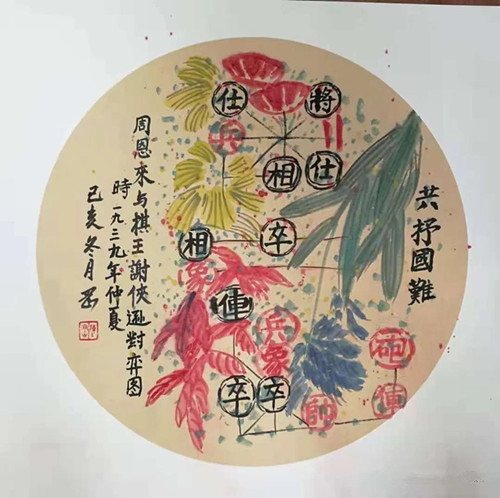 共抒國難
仕
將
兵
相
仕
相
卒
俥
兵
象
砲
卒
卒
帥
俥
周恩來与棋王謝侠遜對弈图
時一九三九年仲夏
己亥冬月